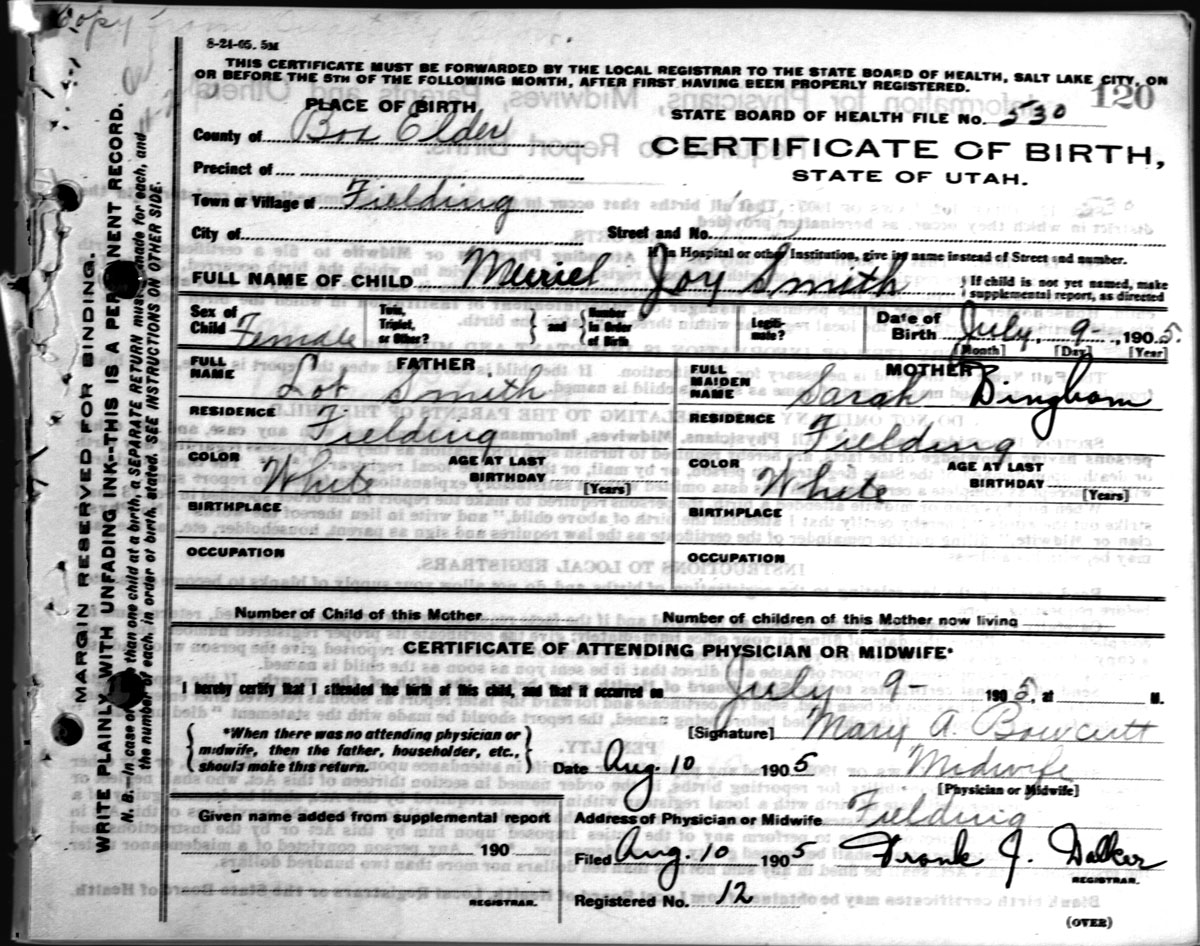 Copy
8-21-05. 5M
THIS CERTIFICATE MUST BE FORWARDED BY THE LOCAL REGISTRAR TO THE STATE BOARD OF HEALTH, SALT LAKE CITY, ON
OR BEFORE THE 5TH OF THE FOLLOWING MONTH, AFTER FIRST HAVING BEEN PROPERLY REGISTERED.
120
PLACE OF BIRTH,
STATE BOARD OF HEALTH FILE No. 530
County of Box Elder
CERTIFICATE OF BIRTH,
STATE OF UTAH.
Precinct of
Town or Village of Fielding
City of
Street and No.
If in Hospital or other Institution, give its name instead of Street and number.
FULL NAME OF CHILD Muriel Joy Smith
If child is not yet named, make
supplemental report, as directed
Sex of
Child Female
Twin,
Triplet,
or Other?
and
Number
in Order
of Birth
Legiti-
mate?
Date of
Birth July 9, 1905.
[Month] [Day] [Year]
FATHER
FULL
NAME Lot Smith
RESIDENCE Fielding
COLOR White
AGE AT LAST
BIRTHDAY
[Years]
BIRTHPLACE
OCCUPATION
MOTHER
FULL
MAIDEN
NAME Sarah Bingham
RESIDENCE Fielding
COLOR White
AGE AT LAST
BIRTHDAY
[Years]
BIRTHPLACE
OCCUPATION
Number of Child of this Mother
Number of children of this Mother now living
CERTIFICATE OF ATTENDING PHYSICIAN OR MIDWIFE*
I hereby certify that I attended the birth of this child, and that it occurred on July 9- 1905, at M.
*When there was no attending physician or
midwife, then the father, householder, etc.,
should make this return.
[Signature] Mary A. Bowcutt
Date Aug. 10 1905
Midwife
[Physician or Midwife]
Given name added from supplemental report
190
REGISTRAR.
Address of Physician or Midwife Fielding
Filed Aug. 10 1905 Frank J. Walker
REGISTRAR.
Registered No. 12
(OVER)
MARGIN RESERVED FOR BINDING.
WRITE PLAINLY WITH UNFADING INK--THIS IS A PERMANENT RECORD.
N. B.--In case of more than one child at a birth, a SEPARATE RETURN must be made for each, and
the number of each, in order of birth, stated. SEE INSTRUCTIONS ON OTHER SIDE.